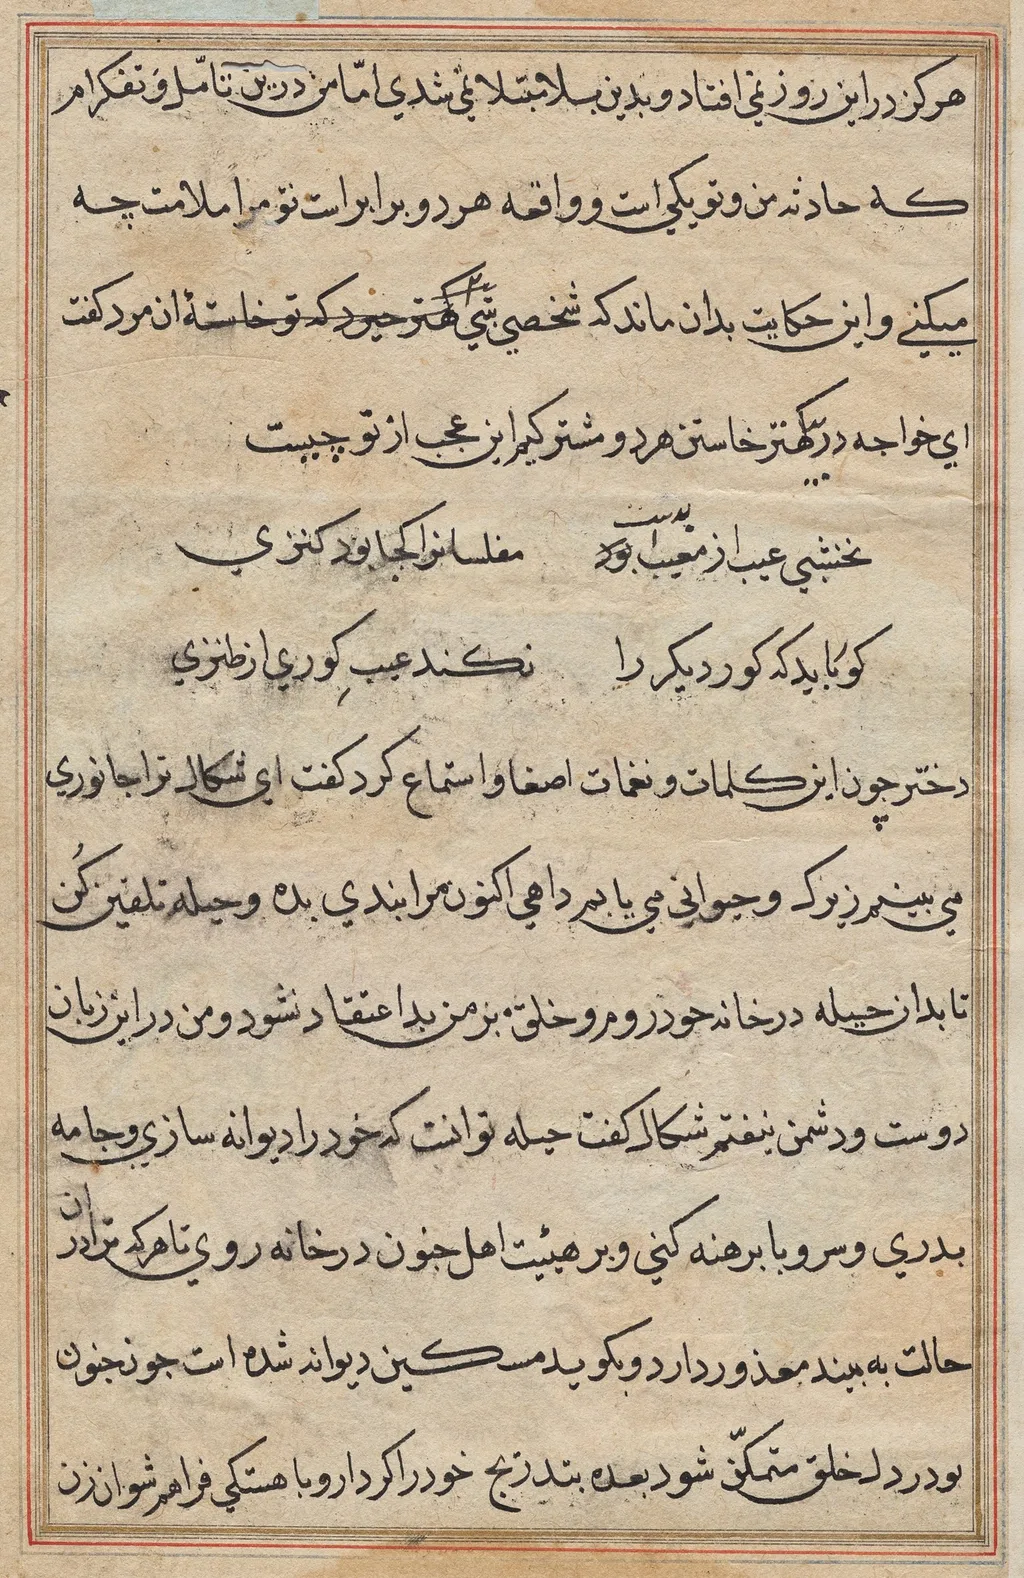 هرکز در این روز نمی افتاد و بدین بلا مبتلا نمی شدي امّا من درین تامّل و تفکرام
که حادثه من و تو یکی است و واقعه هر دو برابر است تو مرا ملامت چه
میکنے و این حکایت بدان ماند که شخصي خود که تو خاستهٔ ان مرد کفت
اي خواجه در خاستن هر دو مشترکیم این عجب از تو چیست
نخشبي عیب از معیب بدست مفلسانرا کجا بود کنزي
کو بابد که کور دیکر را نکند عیبِ کوري از طنزي
دختر چون این کلمات و نغمات اصغا و استماع کرد کفت اي شکال ترا جانوري
مي بینم زیرک و حیواني مي یابم داهي اکنون مرا بندي بده و حیله تلقین کُن
تا بدان حیله در خانه خود روم و خلق بر من بد اعتقاد نشود و من در این زبان
دوست و دشمن نیفتم شکال کفت حیله تو انت که خود را دیوانه سازي و جامه
بدري و سر و پا برهنه کني و بر هیئیت اهل جنون در خانه روي تا هر که ترا در ان
حالت به بیند معذور دارد و بکوید مسکین دیوانه شده است چون جنون
تو در دل خلق متمکّن شود بعده بتدریج خود را کرد ارو باهستکي فراهم شو ان زن